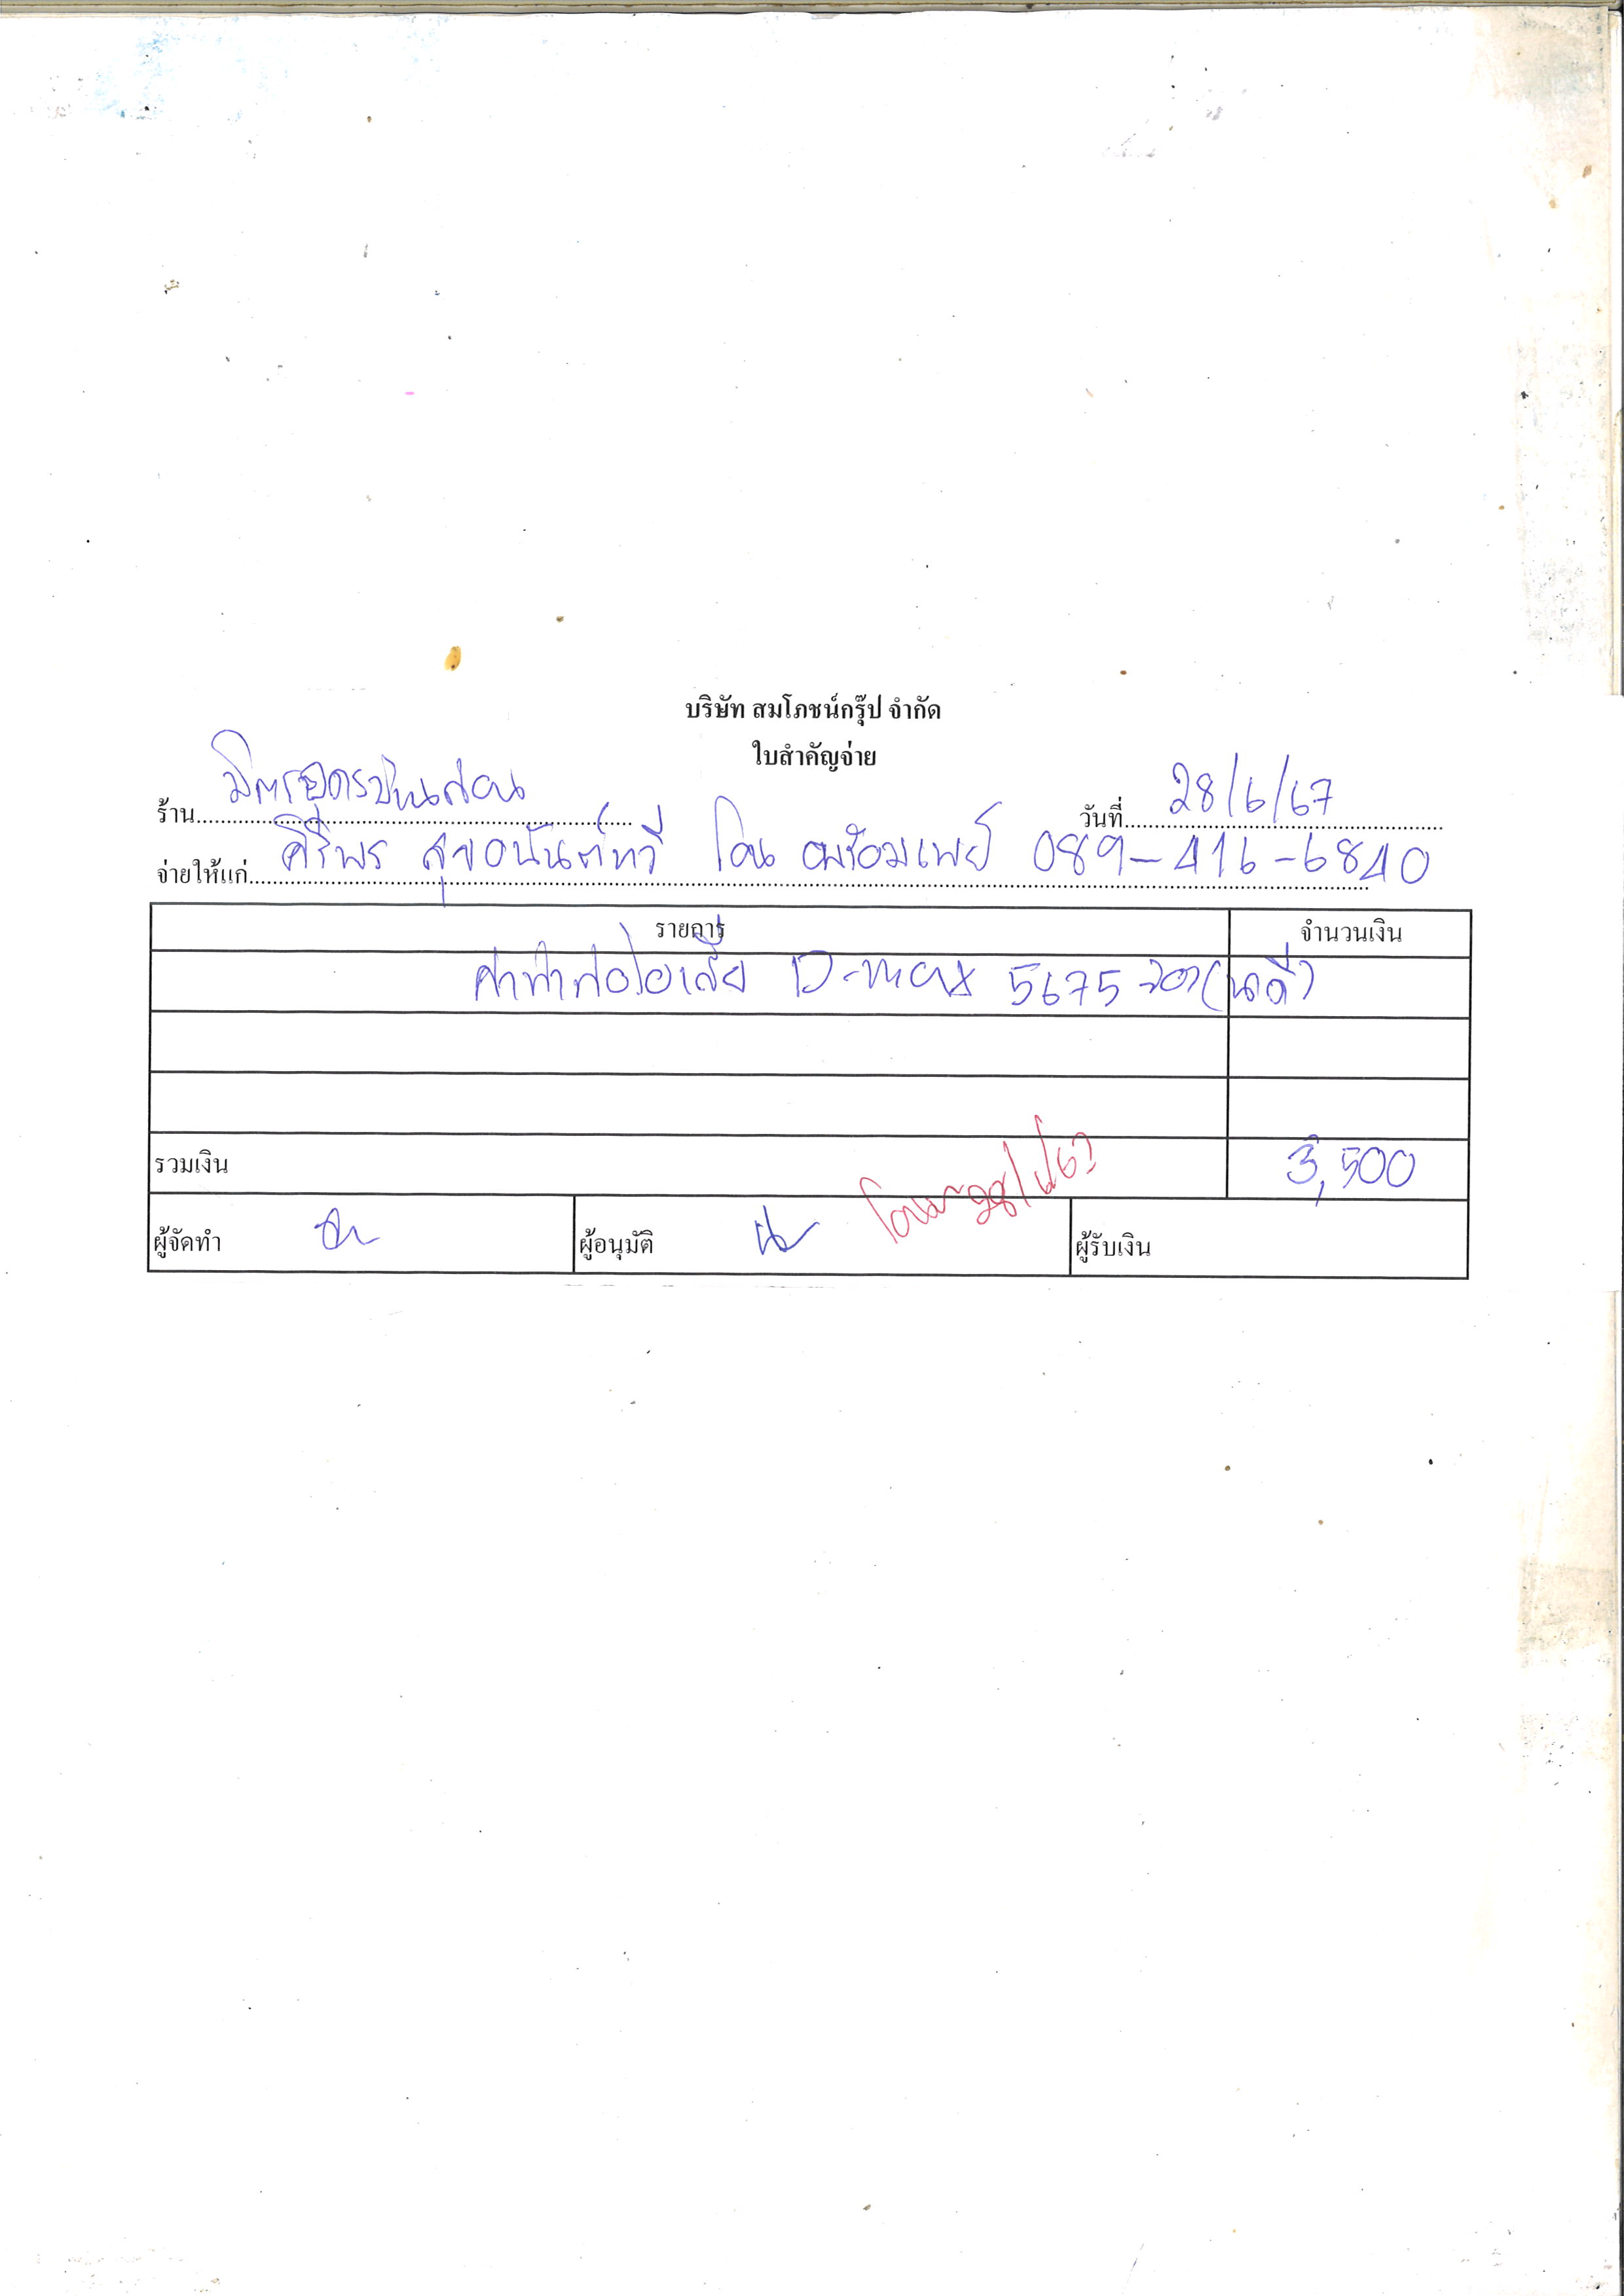 บริษัท สมโภชน์กรุ๊ป จำกัด
ใบสำคัญจ่าย
ร้าน มิตรอุดร
วันที่ 28/6/67
จ่ายให้แก่ ศิริพร สุขอนันต์ทวี โอน พร้อมเพย์ 089-416-6840
รายการ จำนวนเงิน
ค่าทำท่อไอเสีย D-max 5675
รวมเงิน 3,500
โอน 28/6/67
ผู้จัดทำ ผู้อนุมัติ ผู้รับเงิน